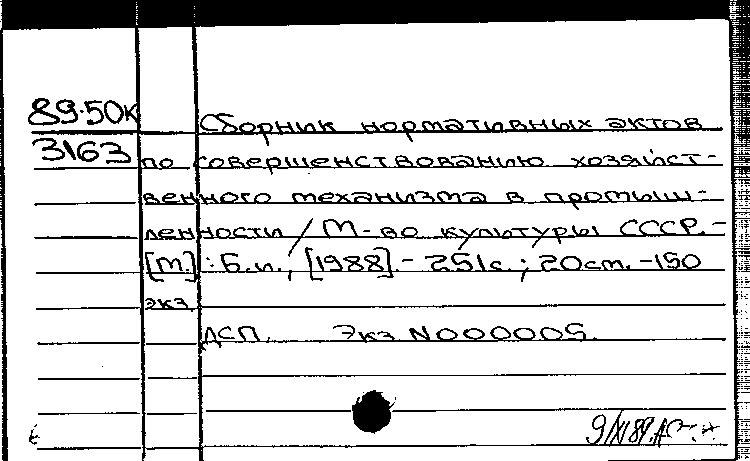 89-50к
3163
Сборник нормативных актов
по совершенствованию хозяйст-
венного механизма в промыш-
ленности / М-во культуры СССР. -
[М.] : Б.и., [1988]. - 251с. ; 20см. - 150
экз.
ДСП. Экз N000005.
9/XI 89.